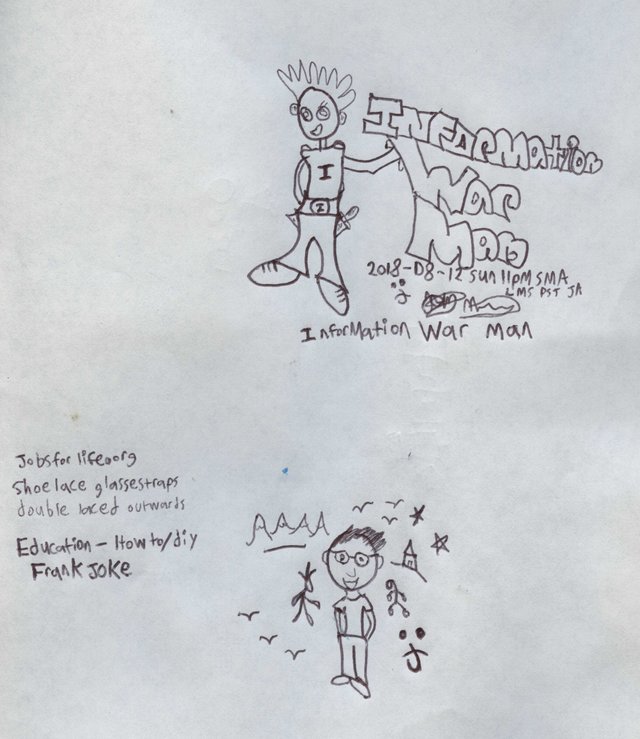 I
I
INFORMATION
WAR
MAN
2018-08-12 SUN 11PM SMA
LMS PST JA
InforMation War man
Jobsforlifeoorg
Shoelace glassestraps
double laced outwards
Education - How to/diy
Frank JOKE
AAAA